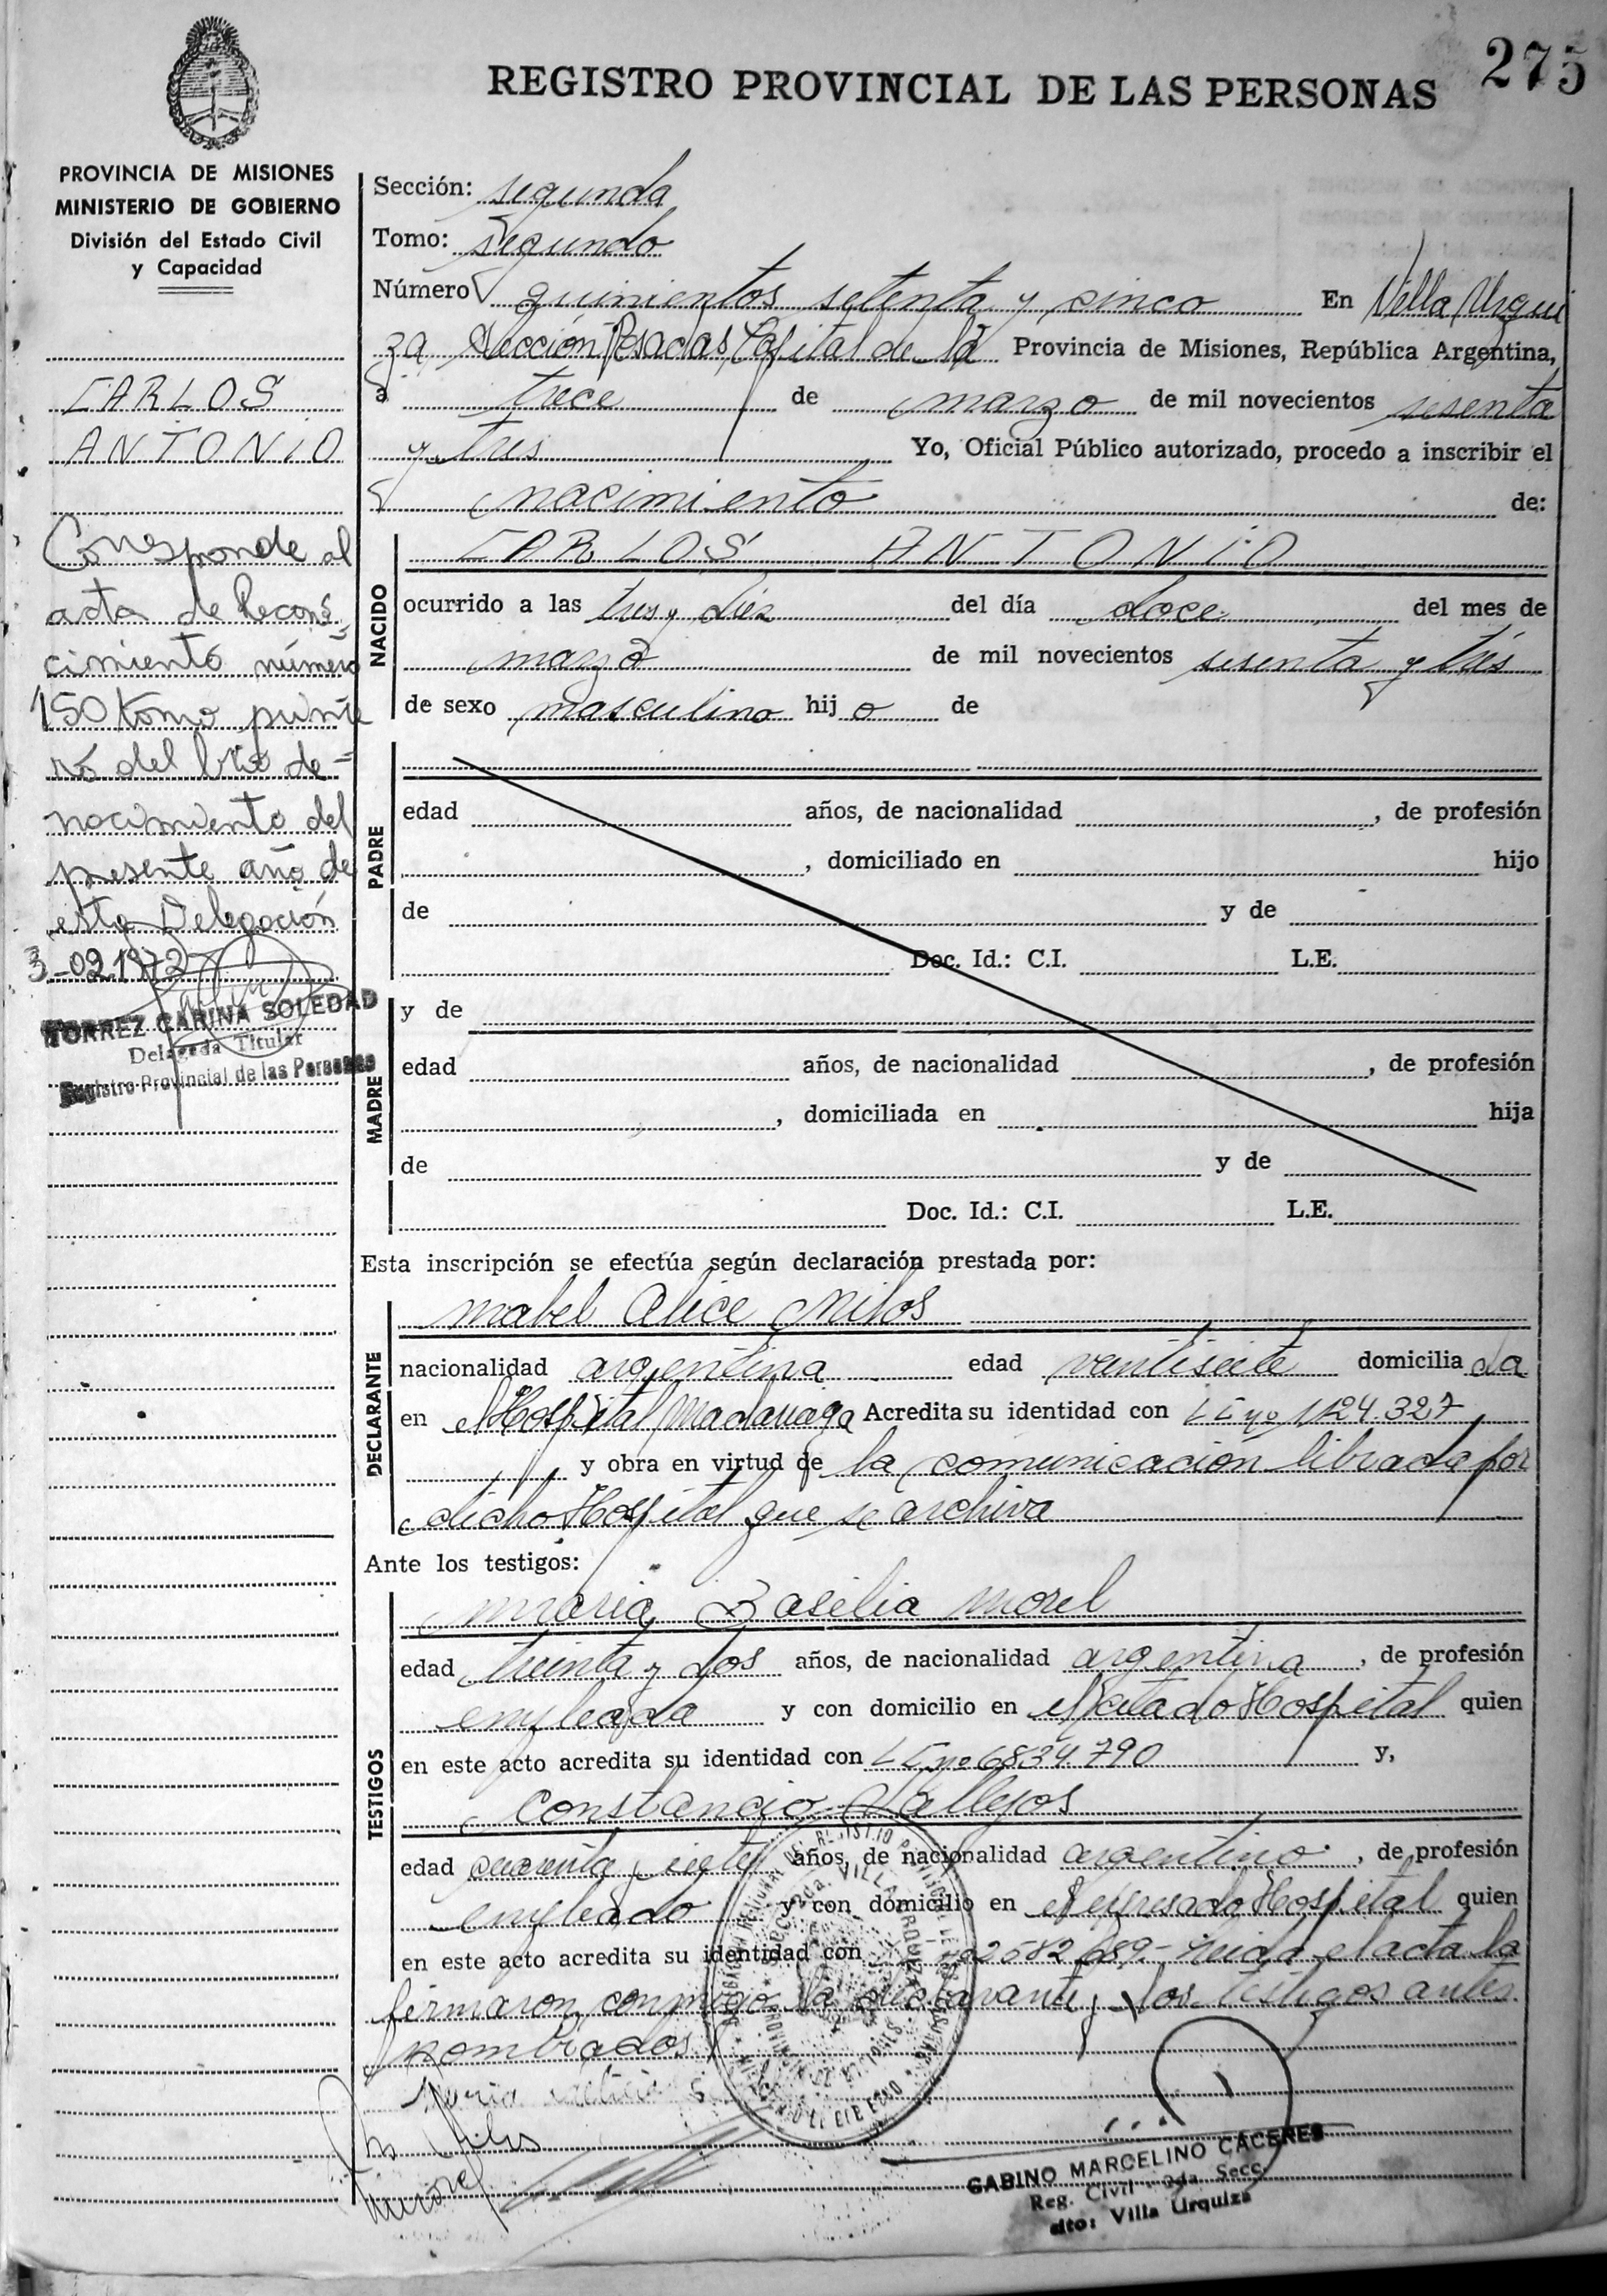 275
REGISTRO PROVINCIAL DE LAS PERSONAS
PROVINCIA DE MISIONES
MINISTERIO DE GOBIERNO
División del Estado Civil
y Capacidad
CARLOS
ANTONIO
Corresponde al
acta de Recono
cimiento número
150 tomo prime
ro del libro de
nacimiento del
presente año de
esta Delegación
3-02-1972
TORREZ CARINA SOLEDAD
Delegada Titular
Registro Provincial de las Personas
Sección: segunda
Tomo: segundo
Número quinientos setenta y cinco En Villa Urqui
za Sección Posadas Capital de la Provincia de Misiones, República Argentina,
a trece de marzo de mil novecientos sesenta
y tres Yo, Oficial Público autorizado, procedo a inscribir el
nacimiento de:
NACIDO
CARLOS ANTONIO
ocurrido a las tres y diez del día doce del mes de
marzo de mil novecientos sesenta y tres
de sexo masculino hijo de
PADRE
edad años, de nacionalidad , de profesión
, domiciliado en hijo
de y de
Doc. Id.: C.I. L.E.
MADRE
y de
edad años, de nacionalidad , de profesión
, domiciliada en hija
de y de
Doc. Id.: C.I. L.E.
Esta inscripción se efectúa según declaración prestada por:
DECLARANTE
Mabel Alice Milos
nacionalidad argentina edad veintisiete domiciliada
en el Hospital Madariaga Acredita su identidad con LC nº 1124.327
y obra en virtud de la comunicación librada por
dicho Hospital que se archiva
Ante los testigos:
TESTIGOS
Maria Basilia Morel
edad treinta y dos años, de nacionalidad argentina , de profesión
empleada y con domicilio en el citado Hospital quien
en este acto acredita su identidad con LC nº 6834.790 y,
Constancio Vallejos
edad y siete años, de nacionalidad argentino , de profesión
empleado y con domicilio en el expresado Hospital quien
en este acto acredita su identidad con 2582689.- Leida el acta la
firmaron conmigo la declarante y los testigos antes
nombrados
VILLA URQUIZA
GABINO MARCELINO CACERES
Reg. Civil 2da. Secc.
dto: Villa Urquiza